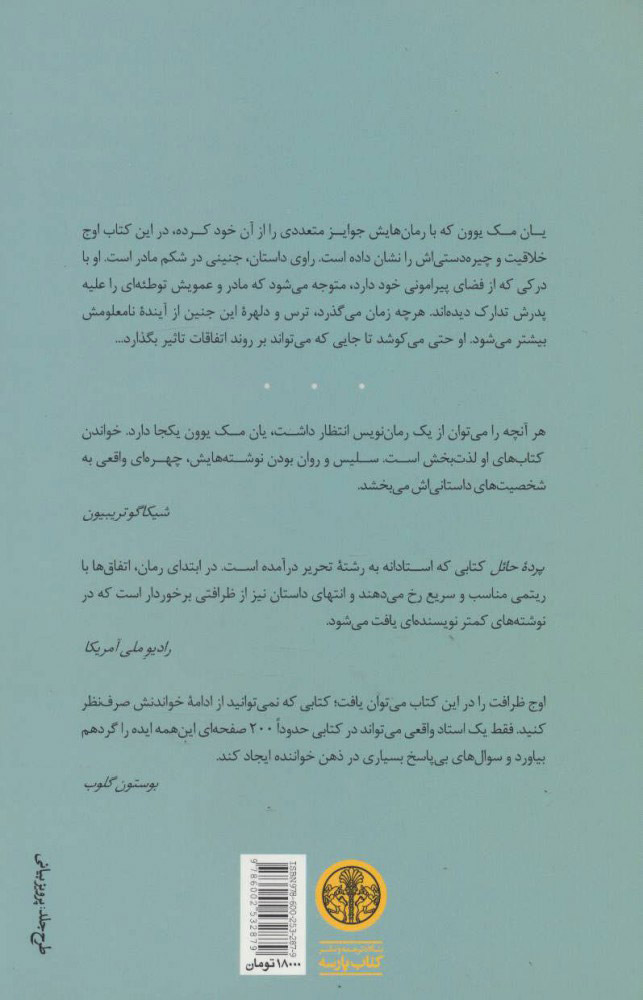 یـان مـک یوون که با رمان‌هایش جوایـز متعددی را از آن خود کـرده، در این کتاب اوج
خلاقیت و چیره‌دستی‌اش را نشان داده است. راوی داستان، جنینی در شکم مادر است. او با
درکی که از فضای پیرامونی خود دارد، متوجه می‌شود که مادر و عمویش توطئه‌ای را علیه
پدرش تدارک دیده‌اند. هرچه زمان می‌گذرد، ترس و دلهرۀ این جنین از آیندۀ نامعلومش
بیشتر می‌شود. او حتی می‌کوشد تا جایی که می‌تواند بر روند اتفاقات تاثیر بگذارد...
هر آنچه را می‌توان از یک رمان‌نویس انتظار داشـت، یان مـک یوون یکجا دارد. خواندن
کتاب‌های او لذت‌بخش است. سـلیس و روان بودن نوشـته‌هایش، چهـره‌ای واقعی به
شخصیت‌های داستانی‌اش می‌بخشد.
شیکاگو تریبیون
پردۀ حائل کتابی که اسـتادانه به رشـتۀ تحریر درآمده است. در ابتدای رمان، اتفاق‌ها با
ریتمی مناسب و سریع رخ می‌دهند و انتهای داستان نیز از ظرافتی برخوردار است که در
نوشته‌های کمتر نویسنده‌ای یافت می‌شود.
رادیو ملی آمریکا
اوج ظرافت را در این کتاب می‌توان یافت؛ کتابی که نمی‌توانید از ادامۀ خواندنش صرف‌نظر
کنید. فقط یک استاد واقعی می‌تواند در کتابی حدوداً ۲۰۰ صفحه‌ای این‌همه ایده را گردهم
بیاورد و سوال‌های بی‌پاسخ بسیاری در ذهن خواننده ایجاد کند.
بوستون گلوب
طرح جلد: پرویز بیانی
ISBN978-600-253-287-9
9786002532879
۱۸۰۰۰ تومان
بنگاه ترجمه و نشر
کتاب پارسه